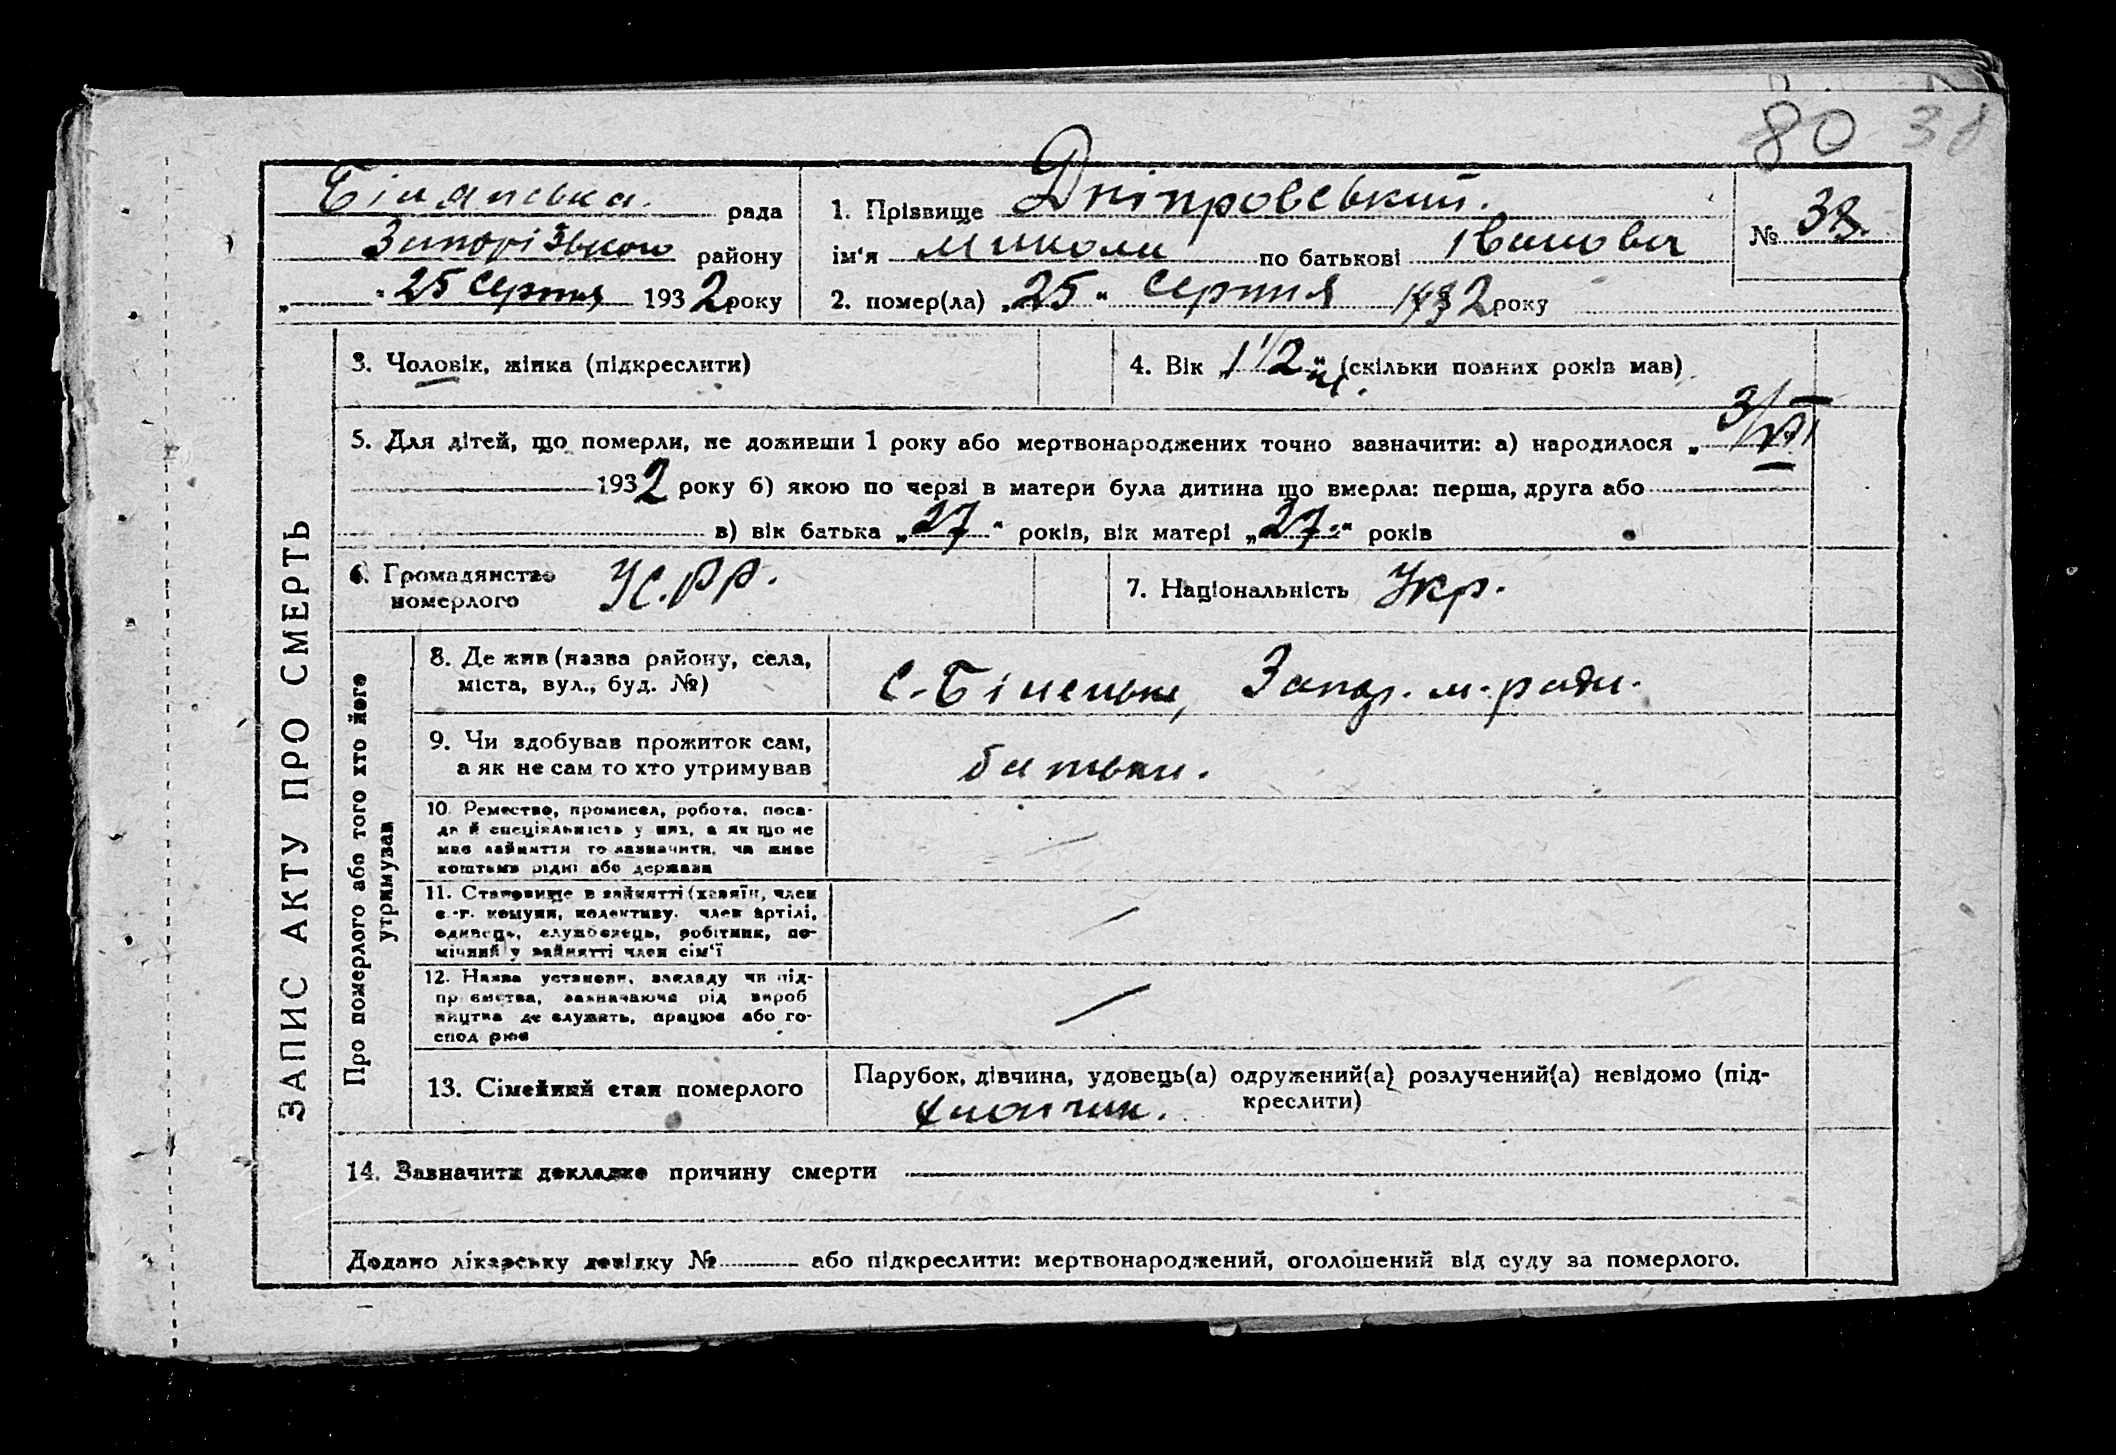 80 38
Білянська рада
Запорізького району
„ " 25 серпня 1932 року
1. Прізвище Дніпровський.
ім'я Микола по батькові Іванович
№ 38.
2. помер(ла) „25" серпня 1932 року
3. Чоловік, жінка (підкреслити)
4. Вік „1 1/2" м. (скільки повних років мав)
5. Для дітей, що померли, не доживши 1 року або мертвонароджених точно зазначити: а) народилося „3/VII
1932 року б) якою по черзі в матери була дитина що вмерла: перша, друга або
в) вік батька „27" років, вік матері „27" років
6. Громадянство номерлого УСРР.
7. Національність Укр.
ЗАПИС АКТУ ПРО СМЕРТЬ
Про померлого або того хто його утримував
8. Де жив (назва району, села,
міста, вул., буд. №)
с. Біленьке, Запор. м. ради.
9. Чи здобував прожиток сам,
а як не сам то хто утримував
батьки.
10. Ремество, промисел, робота, поса-
да й спеціяльність у них, а як що не
має зайняття то зазначити, чи живе
коштами рідні або держави
11. Становище в зайнятті (хазяїн, член
с.-г. комуни, колективу, член артілі,
одинець, службовець, робітник, по-
мічний у зайнятті член сім'ї
12. Назва установи, закладу чи під-
приємства, зазначаючи рід вироб
ництва де служить, працює або го-
спод рює
13. Сімейний стан померлого
Парубок, дівчина, удовець(а) одружений(а) розлучений(а) невідомо (під-
креслити)
хлопчик.
14. Зазначити докладно причину смерти
Додано лікарську довідку № або підкреслити: мертвонароджений, оголошений від суду за померлого.